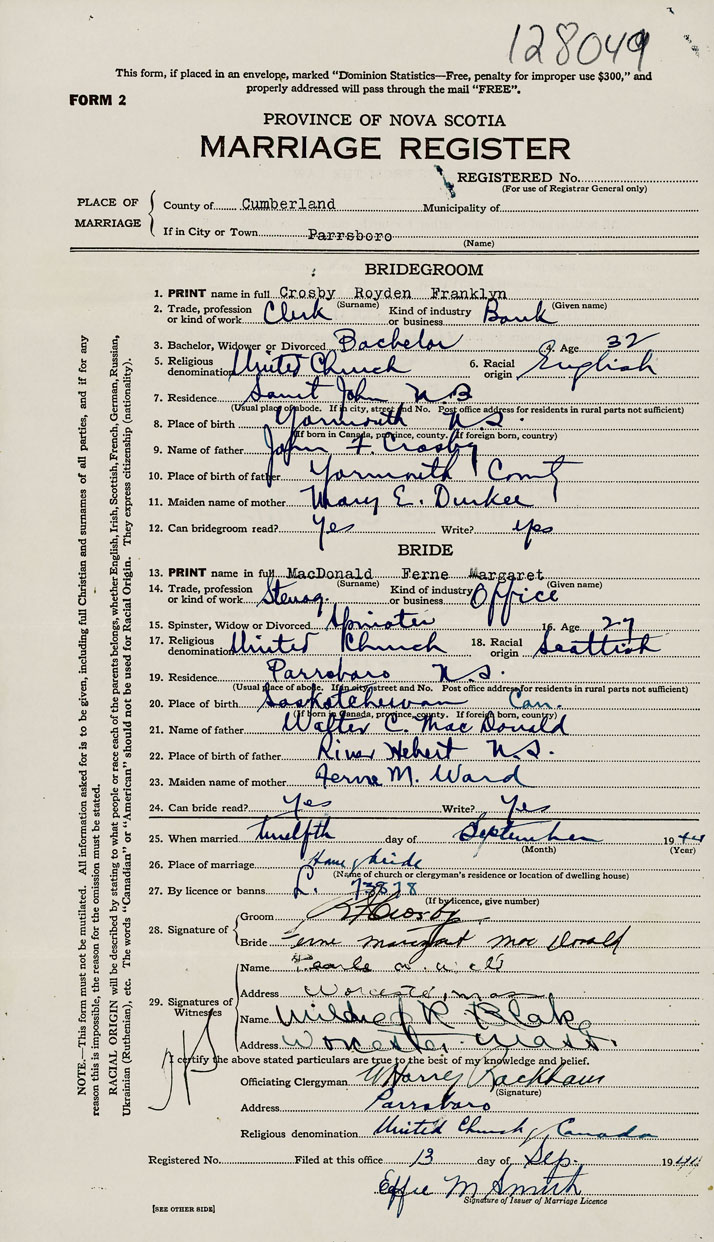 128049
This form, if placed in an envelope, marked "Dominion Statistics—Free, penalty for improper use $300," and
properly addressed will pass through the mail "FREE".
FORM 2
PROVINCE OF NOVA SCOTIA
MARRIAGE REGISTER
REGISTERED No.
(For use of Registrar General only)
PLACE OF MARRIAGE
County of Cumberland Municipality of
If in City or Town Parrsboro
(Name)
BRIDEGROOM
1. PRINT name in full Crosby Royden Franklyn
(Surname) (Given name)
2. Trade, profession or kind of work Clerk Kind of industry or business Bank
3. Bachelor, Widower or Divorced Bachelor 4. Age 32
5. Religious denomination United Church 6. Racial origin English
7. Residence Saint John N.B
(Usual place of abode. If in city, street and No. Post office address for residents in rural parts not sufficient)
8. Place of birth Yarmouth N.S.
(If born in Canada, province, county. If foreign born, country)
9. Name of father John F. Crosby
10. Place of birth of father Yarmouth County
11. Maiden name of mother Mary E. Durkee
12. Can bridegroom read? Yes Write? Yes
BRIDE
13. PRINT name in full MacDonald Ferne Margaret
(Surname) (Given name)
14. Trade, profession or kind of work Stenog. Kind of industry or business Office
15. Spinster, Widow or Divorced Spinster 16. Age 27
17. Religious denomination United Church 18. Racial origin Scottish
19. Residence Parrsboro N.S.
(Usual place of abode. If in city, street and No. Post office address for residents in rural parts not sufficient)
20. Place of birth Saskatchewan Can.
(If born in Canada, province, county. If foreign born, country)
21. Name of father Walter C. MacDonald
22. Place of birth of father River Hebert N.S.
23. Maiden name of mother M. Ward
24. Can bride read? Yes Write? Yes
25. When married twelfth day of September 1944
(Month) (Year)
26. Place of marriage Home bride
(Name of church or clergyman's residence or location of dwelling house)
27. By licence or banns L. 73878
(If by licence, give number)
28. Signature of
Groom Crosby
Bride Ferne Margaret MacDonald
29. Signatures of Witnesses
Name
Address Worcester, Mass
Name Mildred R. Blake
Address Worcester Mass.
I certify the above stated particulars are true to the best of my knowledge and belief.
Officiating Clergyman Harrey Rackham
(Signature)
Address Parrsboro
Religious denomination United Church of Canada
Registered No. Filed at this office 13 day of Sep. 1944
Effie M Smith
Signature of Issuer of Marriage Licence
[SEE OTHER SIDE]
NOTE.—This form must not be mutilated. All information asked for is to be given, including full Christian and surnames of all parties, and if for any
reason this is impossible, the reason for the omission must be stated.
RACIAL ORIGIN will be described by stating to what people or race each of the parents belongs, whether English, Irish, Scottish, French, German, Russian,
Ukrainian (Ruthenian), etc. The words "Canadian" or "American" should not be used for Racial Origin. They express citizenship (nationality).